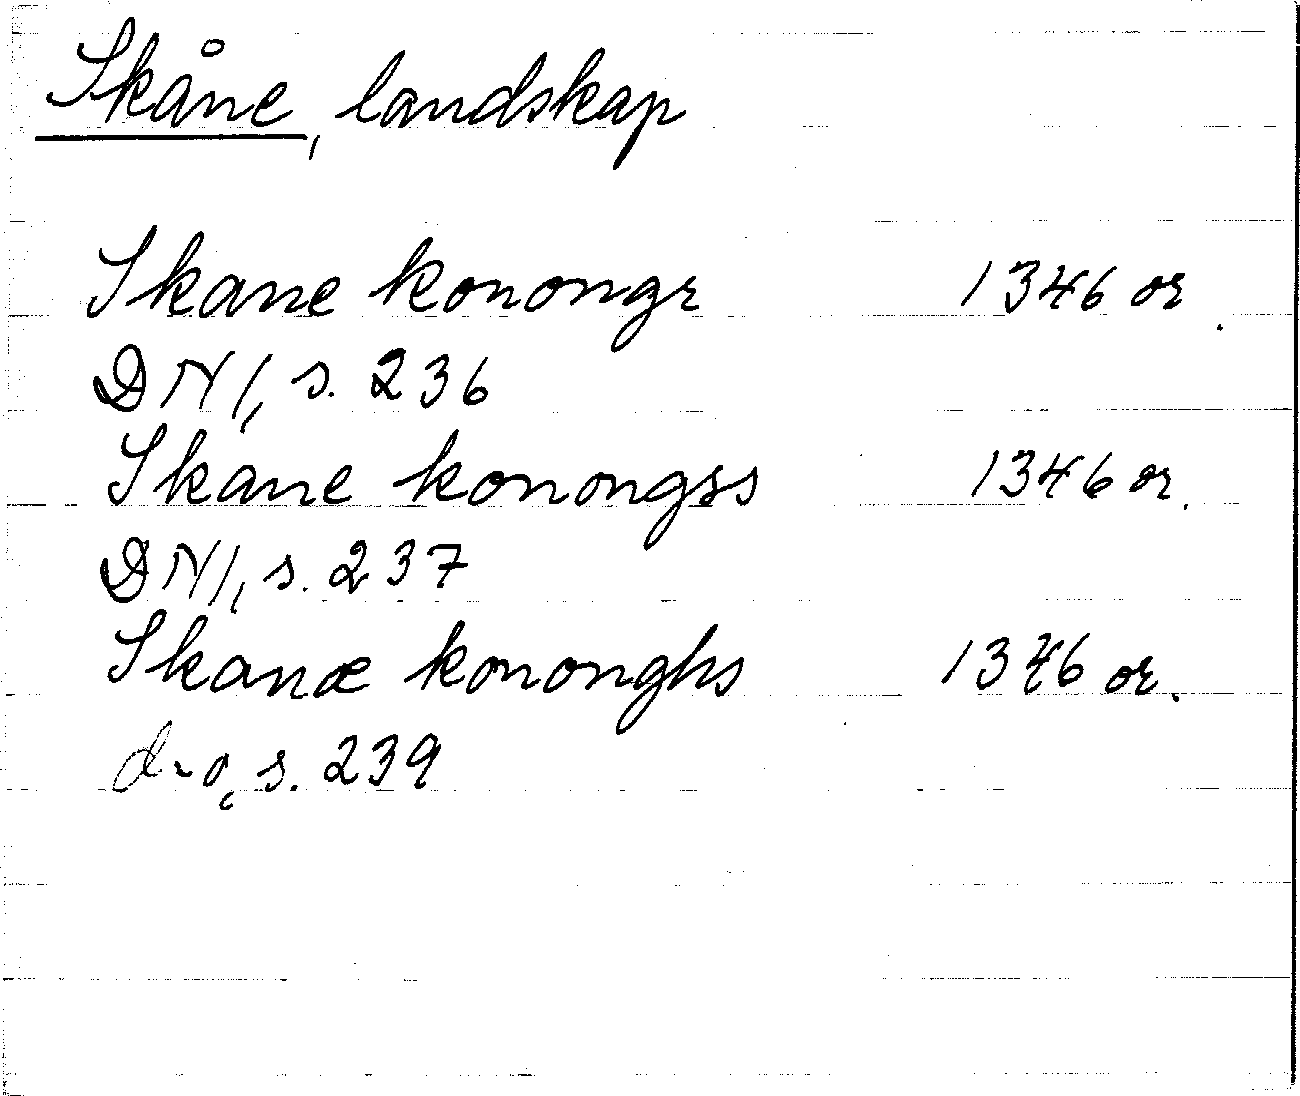 Skåne, landskap
Skane konongr 1346 or.
DN 1, s. 236
Skane konongss 1346 or.
DN 1, s. 237
Skanæ kononghs 1346 or.
d-o, s. 239